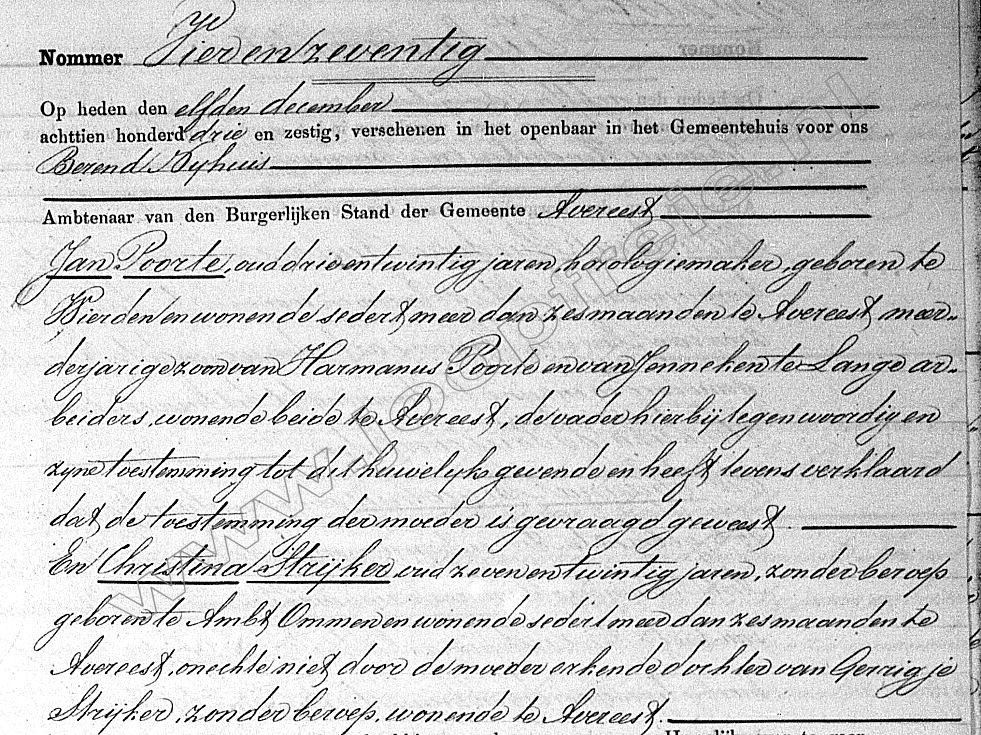 Nommer Vierenzeventig
Op heden den elfden december
achttien honderd drie en zestig, verschenen in het openbaar in het Gemeentehuis voor ons
Berend Nyhuis
Ambtenaar van den Burgerlijken Stand der Gemeente Avereest
Jan Poorte, oud drieentwintig jaren, horologiemaker, geboren te
Wierden en wonende sedert meer dan zes maanden te Avereest, meer-
derjarige zoon van Harmanus Poorte en van Jenneken te Lange ar-
beiders, wonende beide te Avereest, de vader hierbij tegenwoordig en
zyne toestemming tot dit huwelyk gevende en heeft tevens verklaard
dat de toestemming der moeder is gevraagd geweest.
En Christina Strijker oud zevenentwintig jaren, zonder beroep
geboren te Ambt Ommen en wonende sedert meer dan zes maanden te
Avereest, onechte niet door de moeder erkende dochter van Gerrigje
Strijker, zonder beroep, wonende te Avereest.